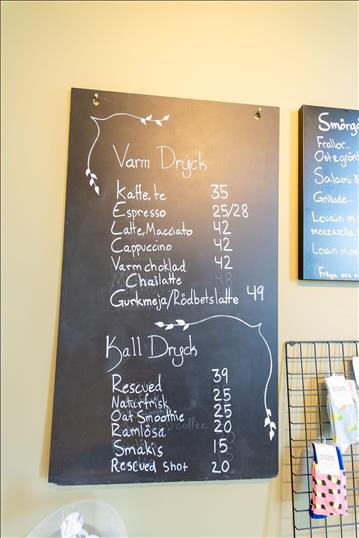 Varm Dryck
Kaffe, te 35
Espresso 25/28
Latte, Macciato 42
Cappucino 42
Varm choklad 42
Chailatte
Gurkmeja/Rödbetslatte 49
Kall Dryck
Rescued 39
Naturfrisk 25
Oat Smoothie 25
Ramlösa 20
Smakis 15
Rescued shot 20
Frallor...
Ost & grönt
Salami &
Grillade...
Levain m
mozzarella,
Levain m
Fråga oss